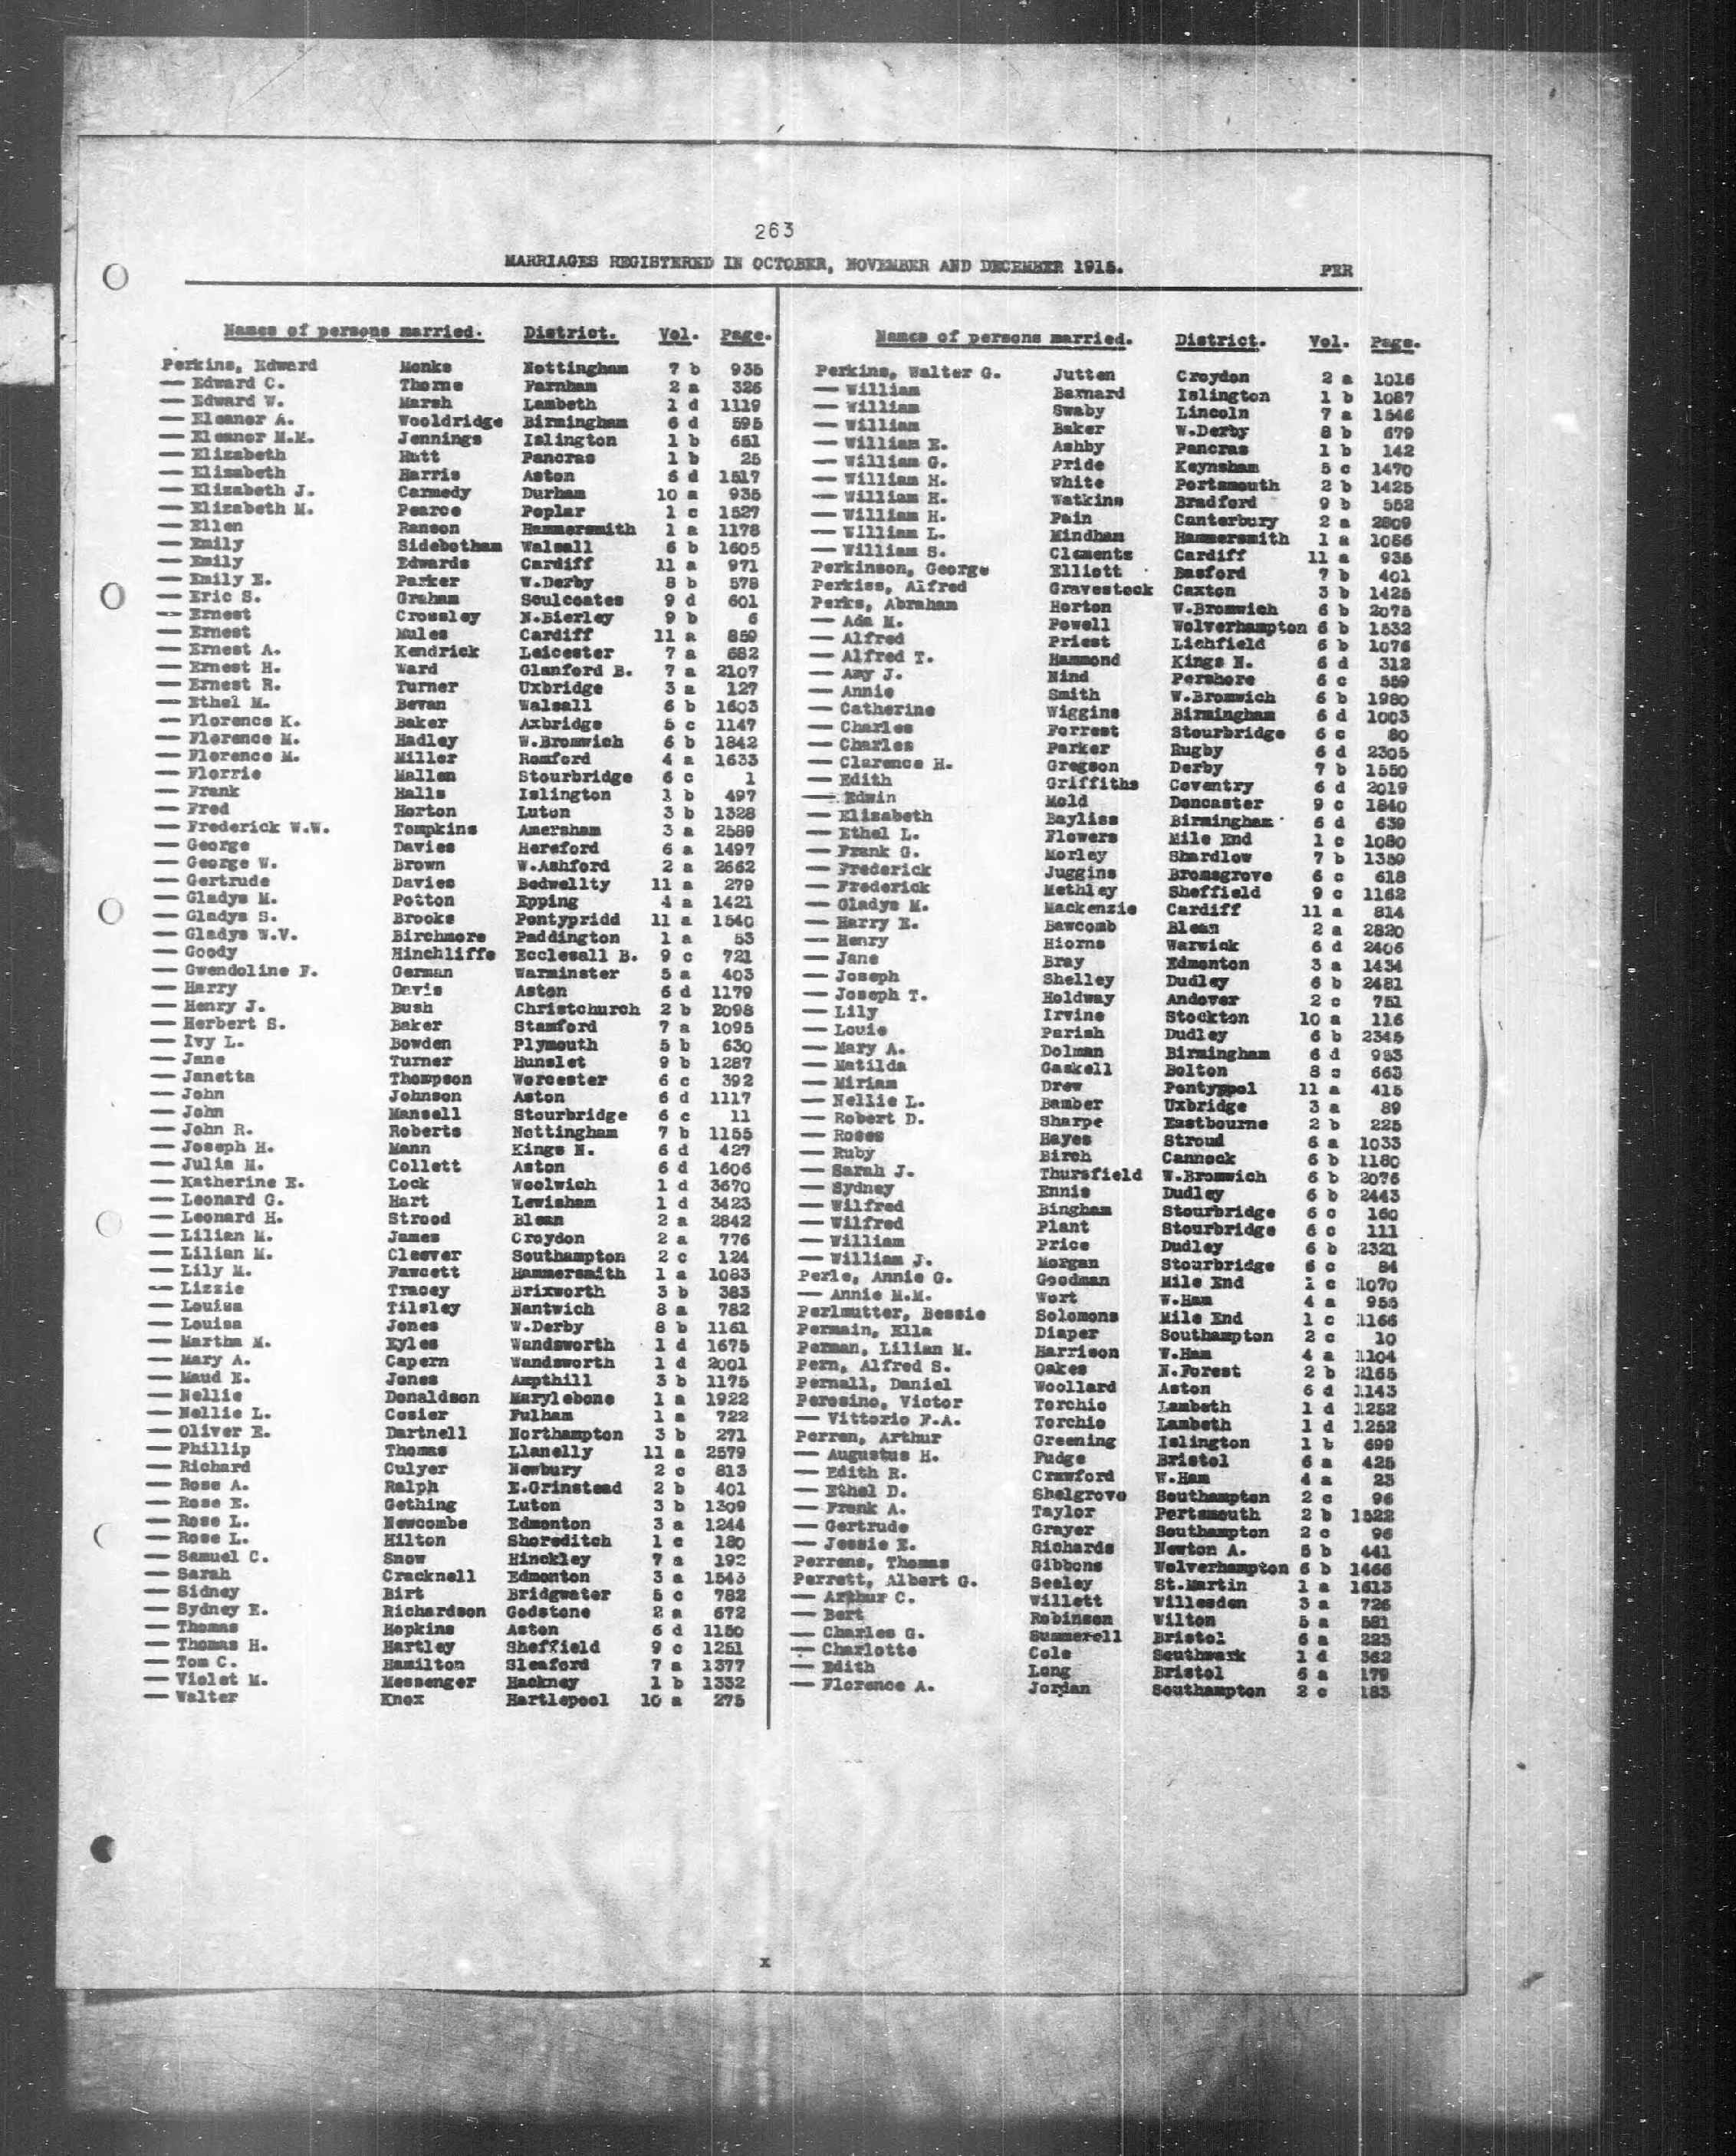 263
MARRIAGES REGISTERED IN OCTOBER, NOVEMBER AND DECEMBER 1915.
PER
Names of persons married. District. Vol. Page.
Perkins, Edward Monks Nottingham 7 b 935
— Edward C. Thorne Farnham 2 a 326
— Edward W. Marsh Lambeth 1 d 1119
— Eleanor A. Wooldridge Birmingham 6 d 595
— Eleanor M.M. Jennings Islington 1 b 651
— Elizabeth Hutt Pancras 1 b 25
— Elizabeth Harris Aston 6 d 1517
— Elizabeth J. Carmedy Durham 10 a 935
— Elizabeth M. Pearce Poplar 1 c 1527
— Ellen Ranson Hammersmith 1 a 1178
— Emily Sidebotham Walsall 6 b 1605
— Emily Edwards Cardiff 11 a 971
— Emily E. Parker W.Derby 8 b 578
— Eric S. Graham Sculcoates 9 d 601
— Ernest Crossley N.Bierley 9 b 6
— Ernest Mules Cardiff 11 a 859
— Ernest A. Kendrick Leicester 7 a 682
— Ernest H. Ward Glanford B. 7 a 2107
— Ernest R. Turner Uxbridge 3 a 127
— Ethel M. Bevan Walsall 6 b 1603
— Florence K. Baker Axbridge 5 c 1147
— Florence M. Hadley W.Bromwich 6 b 1842
— Florence M. Miller Romford 4 a 1633
— Florrie Mallen Stourbridge 6 c 1
— Frank Halls Islington 1 b 497
— Fred Horton Luton 3 b 1328
— Frederick W.W. Tompkins Amersham 3 a 2589
— George Davies Hereford 6 a 1497
— George W. Brown W.Ashford 2 a 2662
— Gertrude Davies Bedwellty 11 a 279
— Gladys M. Potton Epping 4 a 1421
— Gladys S. Brooks Pontypridd 11 a 1540
— Gladys W.V. Birchmore Paddington 1 a 53
— Goody Hinchliffe Ecclesall B. 9 c 721
— Gwendoline F. German Warminster 5 a 403
— Harry Davis Aston 6 d 1179
— Henry J. Bush Christchurch 2 b 2098
— Herbert S. Baker Stamford 7 a 1095
— Ivy L. Bowden Plymouth 5 b 630
— Jane Turner Hunslet 9 b 1287
— Janetta Thompson Worcester 6 c 392
— John Johnson Aston 6 d 1117
— John Mansell Stourbridge 6 c 11
— John R. Roberts Nottingham 7 b 1155
— Joseph H. Mann Kings N. 6 d 427
— Julia M. Collett Aston 6 d 1606
— Katherine E. Lock Woolwich 1 d 3670
— Leonard G. Hart Lewisham 1 d 3423
— Leonard H. Strood Blean 2 a 2842
— Lilian M. James Croydon 2 a 776
— Lilian M. Cleever Southampton 2 c 124
— Lily M. Fawcett Hammersmith 1 a 1083
— Lizzie Tracey Brixworth 3 b 383
— Louisa Tilsley Nantwich 8 a 782
— Louisa Jones W.Derby 8 b 1161
— Martha M. Kyles Wandsworth 1 d 1675
— Mary A. Capern Wandsworth 1 d 2001
— Maud E. Jones Ampthill 3 b 1175
— Nellie Donaldson Marylebone 1 a 1922
— Nellie L. Cosier Fulham 1 a 722
— Oliver E. Dartnell Northampton 3 b 271
— Phillip Thomas Llanelly 11 a 2579
— Richard Culyer Newbury 2 c 813
— Rose A. Ralph E.Grinstead 2 b 401
— Rose E. Gething Luton 3 b 1309
— Rose L. Newcombe Edmonton 3 a 1244
— Rose L. Hilton Shoreditch 1 c 180
— Samuel C. Snow Hinckley 7 a 192
— Sarah Cracknell Edmonton 3 a 1543
— Sidney Birt Bridgwater 5 c 782
— Sydney E. Richardson Godstone 2 a 672
— Thomas Hopkins Aston 6 d 1150
— Thomas H. Hartley Sheffield 9 c 1251
— Tom C. Hamilton Sleaford 7 a 1377
— Violet M. Messenger Hackney 1 b 1332
— Walter Knox Hartlepool 10 a 275
Names of persons married. District. Vol. Page.
Perkins, Walter G. Jutten Croydon 2 a 1016
— William Barnard Islington 1 b 1087
— William Swaby Lincoln 7 a 1546
— William Baker W.Derby 8 b 679
— William E. Ashby Pancras 1 b 142
— William G. Pride Keynsham 5 c 1470
— William H. White Portsmouth 2 b 1425
— William H. Watkins Bradford 9 b 552
— William H. Pain Canterbury 2 a 2809
— William L. Mindham Hammersmith 1 a 1056
— William S. Clements Cardiff 11 a 935
Perkinson, George Elliott Basford 7 b 401
Perkiss, Alfred Gravestock Caxton 3 b 1425
Perks, Abraham Horton W.Bromwich 6 b 2075
— Ada M. Powell Wolverhampton 6 b 1532
— Alfred Priest Lichfield 6 b 1076
— Alfred T. Hammond Kings N. 6 d 312
— Amy J. Nind Pershore 6 c 559
— Annie Smith W.Bromwich 6 b 1980
— Catherine Wiggins Birmingham 6 d 1003
— Charles Forrest Stourbridge 6 c 80
— Charles Parker Rugby 6 d 2305
— Clarence H. Gregson Derby 7 b 1550
— Edith Griffiths Coventry 6 d 2019
— Edwin Mold Doncaster 9 c 1840
— Elizabeth Bayliss Birmingham 6 d 639
— Ethel L. Flowers Mile End 1 c 1080
— Frank G. Morley Shardlow 7 b 1359
— Frederick Juggins Bromsgrove 6 c 618
— Frederick Methley Sheffield 9 c 1162
— Gladys M. Mackenzie Cardiff 11 a 814
— Harry E. Bawcomb Blean 2 a 2820
— Henry Hiorns Warwick 6 d 2406
— Jane Bray Edmonton 3 a 1434
— Joseph Shelley Dudley 6 b 2481
— Joseph T. Holdway Andover 2 c 751
— Lily Irvine Stockton 10 a 116
— Louie Parish Dudley 6 b 2345
— Mary A. Dolman Birmingham 6 d 953
— Matilda Gaskell Bolton 8 c 663
— Miriam Drew Pontypool 11 a 415
— Nellie L. Bamber Uxbridge 3 a 89
— Robert D. Sharpe Eastbourne 2 b 225
— Roses Hayes Stroud 6 a 1033
— Ruby Birch Cannock 6 b 1180
— Sarah J. Thursfield W.Bromwich 6 b 2076
— Sydney Ennis Dudley 6 b 2443
— Wilfred Bingham Stourbridge 6 c 160
— Wilfred Plant Stourbridge 6 c 111
— William Price Dudley 6 b 2321
— William J. Morgan Stourbridge 6 c 84
Perle, Annie G. Goodman Mile End 1 c 1070
— Annie M.M. Wort W.Ham 4 a 955
Perlmutter, Bessie Solomons Mile End 1 c 1166
Permain, Ella Diaper Southampton 2 c 10
Perman, Lilian M. Harrison W.Ham 4 a 1104
Pern, Alfred S. Oakes N.Forest 2 b 2165
Pernall, Daniel Woollard Aston 6 d 1143
Perosino, Victor Torchio Lambeth 1 d 1252
— Vittorio F.A. Torchio Lambeth 1 d 1252
Perren, Arthur Greening Islington 1 b 699
— Augustus H. Fudge Bristol 6 a 425
— Edith R. Crawford W.Ham 4 a 23
— Ethel D. Shelgrove Southampton 2 c 96
— Frank A. Taylor Portsmouth 2 b 1522
— Gertrude Grayer Southampton 2 c 96
— Jessie E. Richards Newton A. 5 b 441
Perrens, Thomas Gibbons Wolverhampton 6 b 1466
Perrett, Albert G. Seeley St.Martin 1 a 1613
— Arthur C. Willett Willesden 3 a 726
— Bert Robinson Wilton 5 a 581
— Charles G. Summerell Bristol 6 a 223
— Charlotte Cole Southwark 1 d 362
— Edith Long Bristol 6 a 179
— Florence A. Jordan Southampton 2 c 183
X